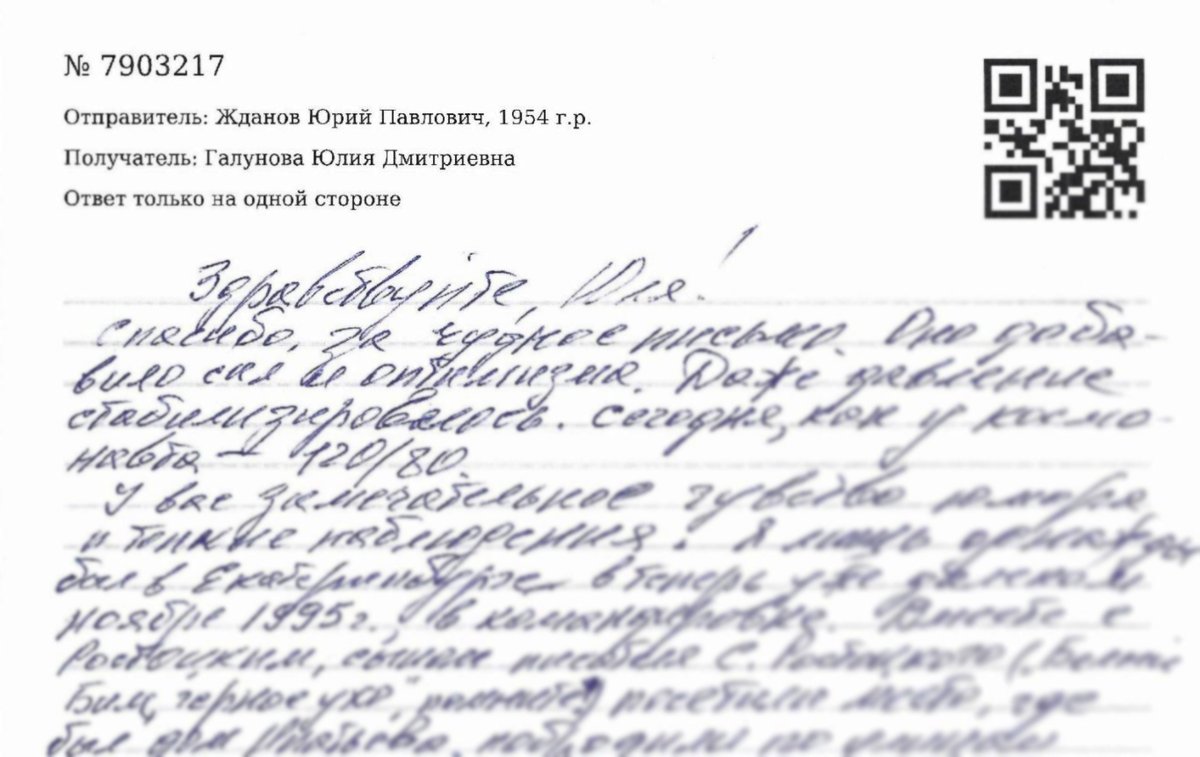 № 7903217
Отправитель: Жданов Юрий Павлович, 1954 г.р.
Получатель: Галунова Юлия Дмитриевна
Ответ только на одной стороне
Здравствуйте, Юля!
Спасибо, за чудное письмо. Оно доба-
вило сил и оптимизма. Даже давление
стабилизировалось. Сегодня, как у космо-
навта — 120/80.
У вас замечательное чувство юмора
и тонкие наблюдения. Я лишь однажды
был в Екатеринбурге в теперь уже далеком
ноябре 1995г., в командировке. Вместе с
Ростоцким, сыном С. Ростоцкого ("Белый
Бим, черное ухо", помните) посетили место, где
был дом Ипатьева,